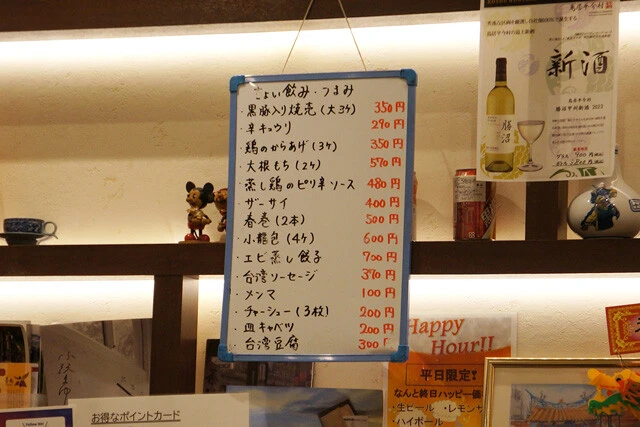 ちょい飲み・つまみ
・黒豚入り焼売(大3ケ) 350円
・辛キュウリ 290円
・鶏のからあげ(3ケ) 350円
・大根もち(2ケ) 570円
・蒸し鶏のピリ辛ソース 480円
・ザーサイ 400円
・春巻(2本) 500円
・小籠包(4ケ) 600円
・エビ蒸し餃子 700円
・台湾ソーセージ 390円
・メンマ 100円
・チャーシュー(3枚) 200円
・皿キャベツ 200円
・台湾豆腐 300円
新酒
勝沼
Happy
Hour!!
平日限定!
なんと終日ハッピー価
・生ビール ・レモンサ
・ハイボール
お得なポイントカード